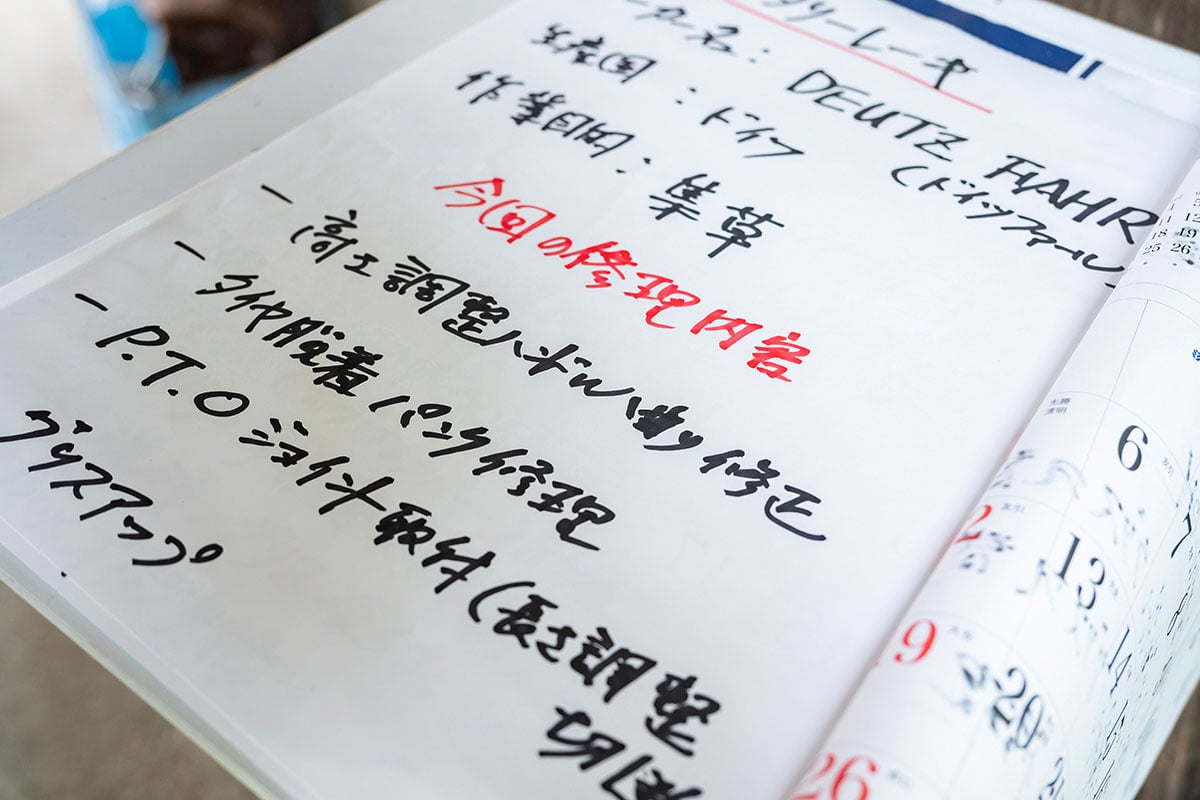 ーカー名：DEUTZ FAHR
(ドイツファール)
生産国：ドイツ
作業目的：集草
今回の修理内容
ー 高さ調整ハンドル曲り修正
ー タイヤ脱着 パンク修理
ー P.T.O ジョイント取付(長さ調整
切断
グリスアップ
6
13
14
9
20
26